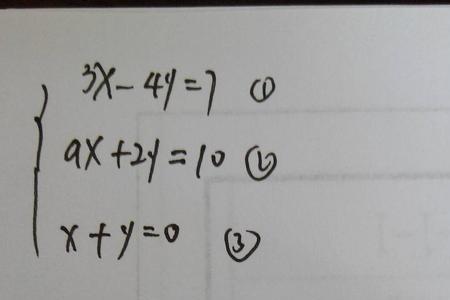 3x-4y=7 ①
ax+2y=10 ②
x+y=0 ③